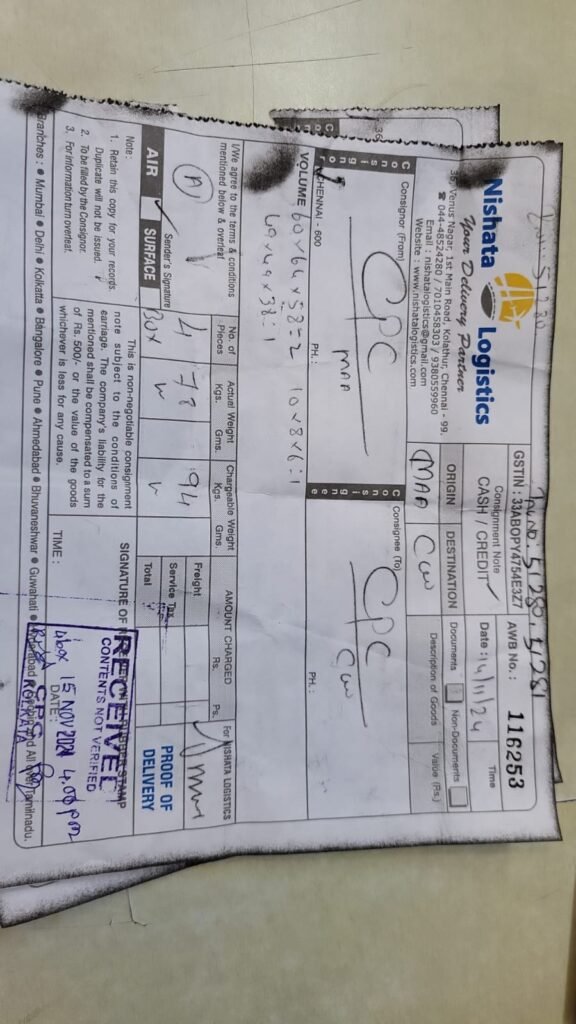 Inv no: 51280, 51281
Nishata Logistics
Your Delivery Partner
36, Venus Nagar, 1st Main Road, Kolathur, Chennai - 99.
☎ 044-48524280 / 7010458303 / 9380559960
Email : nishatalogistics@gmail.com
Website : www.nishatalogistics.com
GSTIN : 33ABOPY4754E3Z7
AWB No. : 116253
Consignment Note
CASH / CREDIT ✓
Date : 14/11/24
Time
ORIGIN
DESTINATION
Documents
Non-Documents
MAA
CCU
Description of Goods
Value (Rs.)
Consignor
Consignor (From)
CPC
MAA
CHENNAI - 600
PH. :
Consignee
Consignee (To)
CPC
CCU
PH. :
VOLUME 60x64x58=2 10x8x6:1
49x49x38:1
I/We agree to the terms & conditions
mentioned below & overleaf
No. of
Pieces
Actual Weight
Kgs. Gms.
Chargeable Weight
Kgs. Gms.
AMOUNT CHARGED
Rs. Ps.
For NISHATA LOGISTICS
4
78
94
Box
Freight
Service Tax
Total
PROOF OF
DELIVERY
Sender's Signature
AIR ✓ SURFACE
Note :
1. Retain this copy for your records.
Duplicate will not be issued.
2. To be filled by the Consignor.
3. For information turn overleaf.
This is non-negotiable consignment
note subject to the conditions of
carriage. The company's liability for the
mentioned shall be compensated to a sum
of Rs. 500/- or the value of the goods
whichever is less for any cause.
SIGNATURE OF
STAMP
TIME :
DATE :
RECEIVED
CONTENTS NOT VERIFIED
4 box 15 NOV 2024 4.00 pm
CPC
KOLKATA
Branches : ● Mumbai ● Delhi ● Kolkatta ● Bangalore ● Pune ● Ahmedabad ● Bhuvaneshwar ● Guwahati ● and All over Tamilnadu.